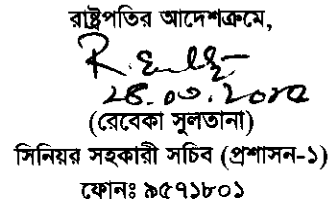 রাষ্ট্রপতির আদেশক্রমে,
(রেবেকা সুলতানা)
সিনিয়র সহকারী সচিব (প্রশাসন-১)
ফোনঃ ৯৫৭১৮০১